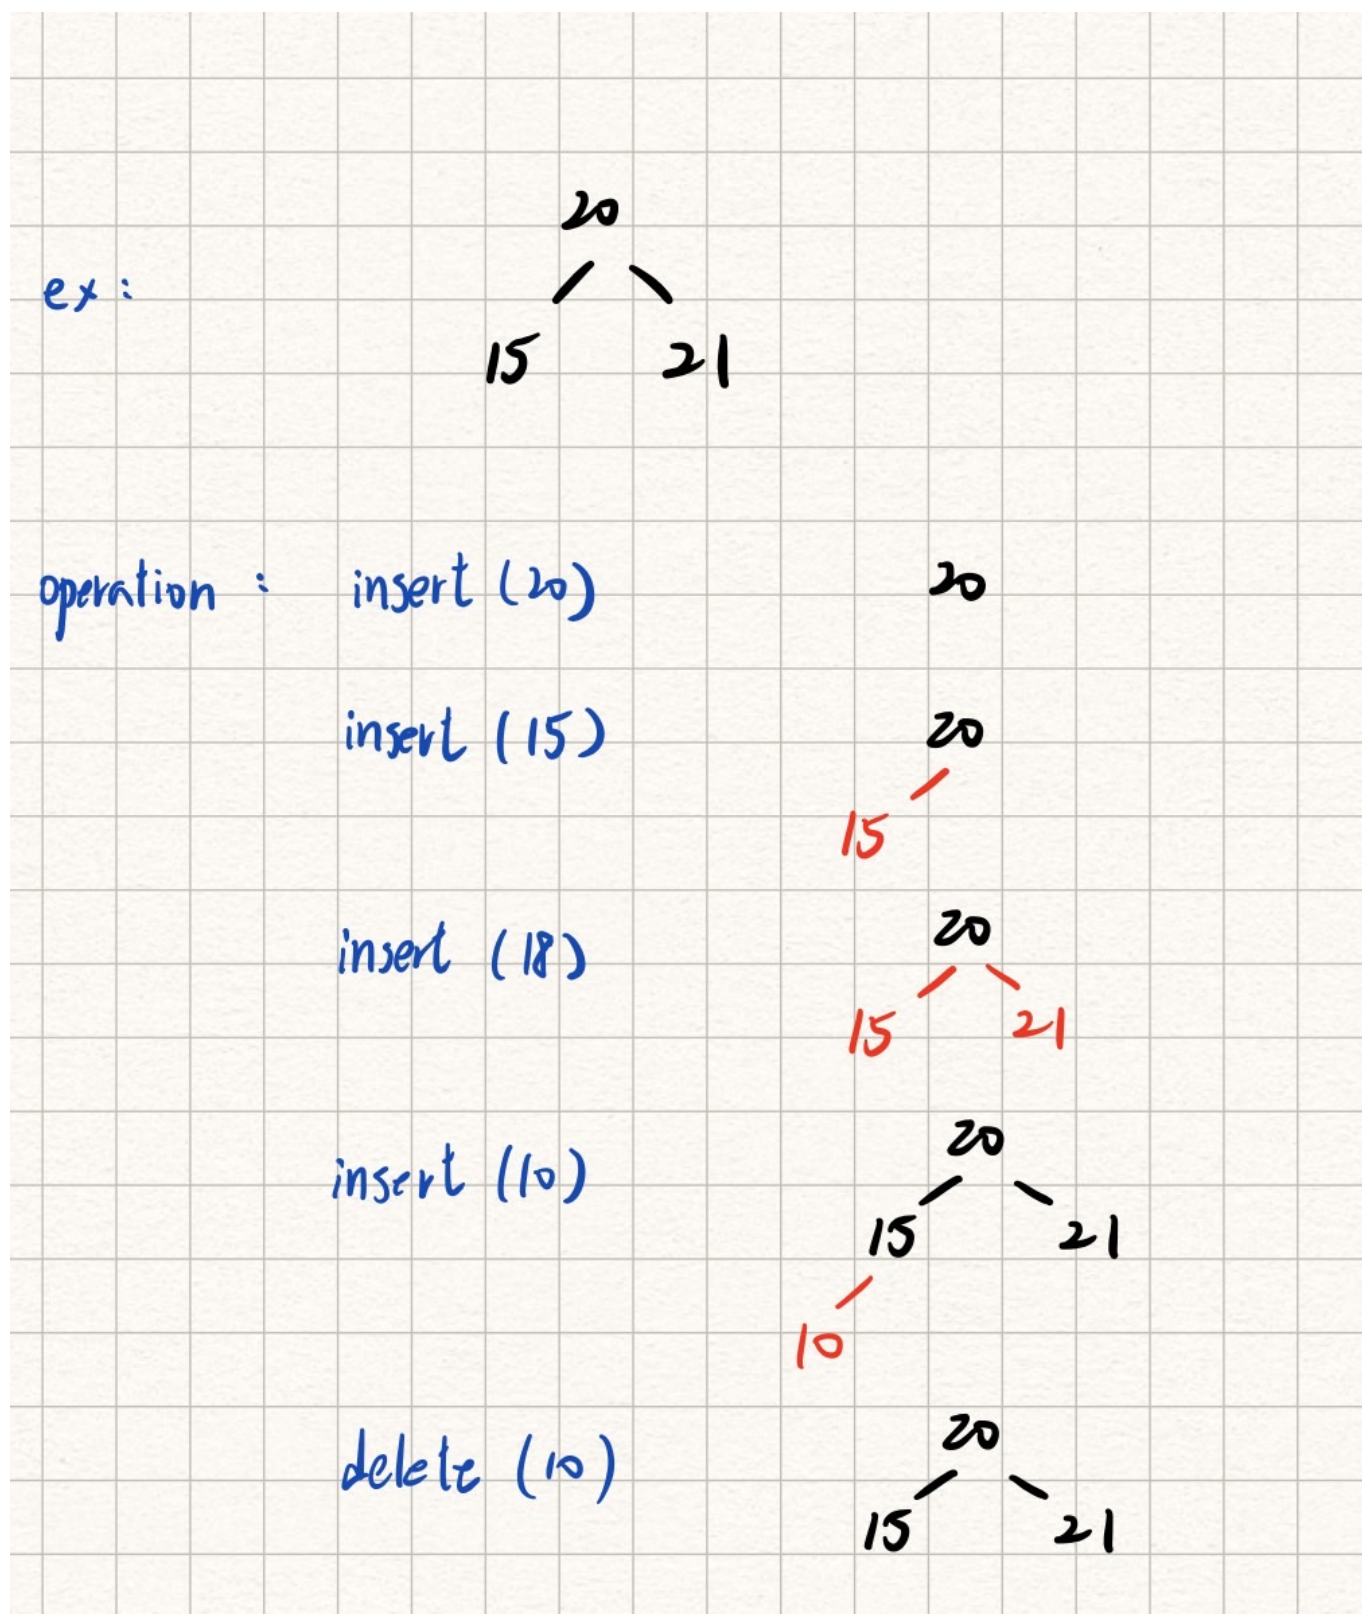 20
ex :
15 21
operation : insert (20) 20
insert (15) 20
15
insert (18) 20
15 21
insert (10) 20
15 21
10
delete (10) 20
15 21